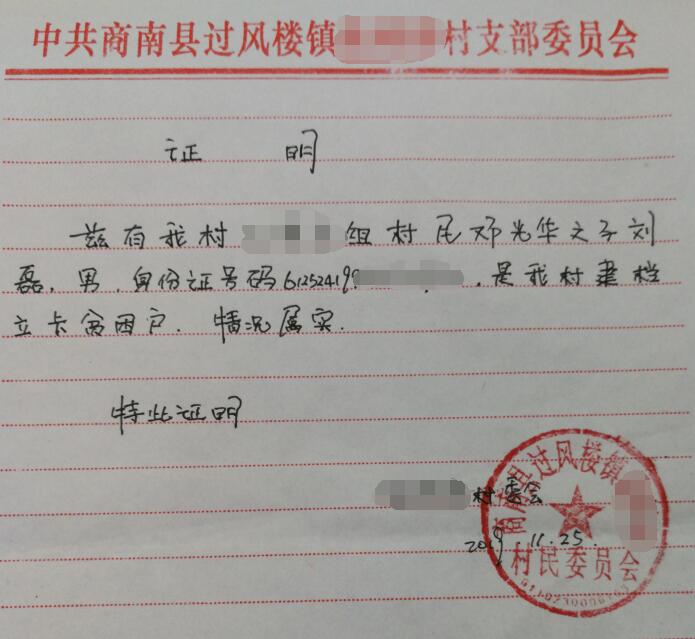 中共商南县过风楼镇 村支部委员会
证 明
兹有我村 组村民邓光华之子刘
磊，男，身份证号码61252419 ，是我村建档
立卡贫困户．情况属实．
特此证明
村委会
2019．11．25．
商南县过风楼镇
村民委员会